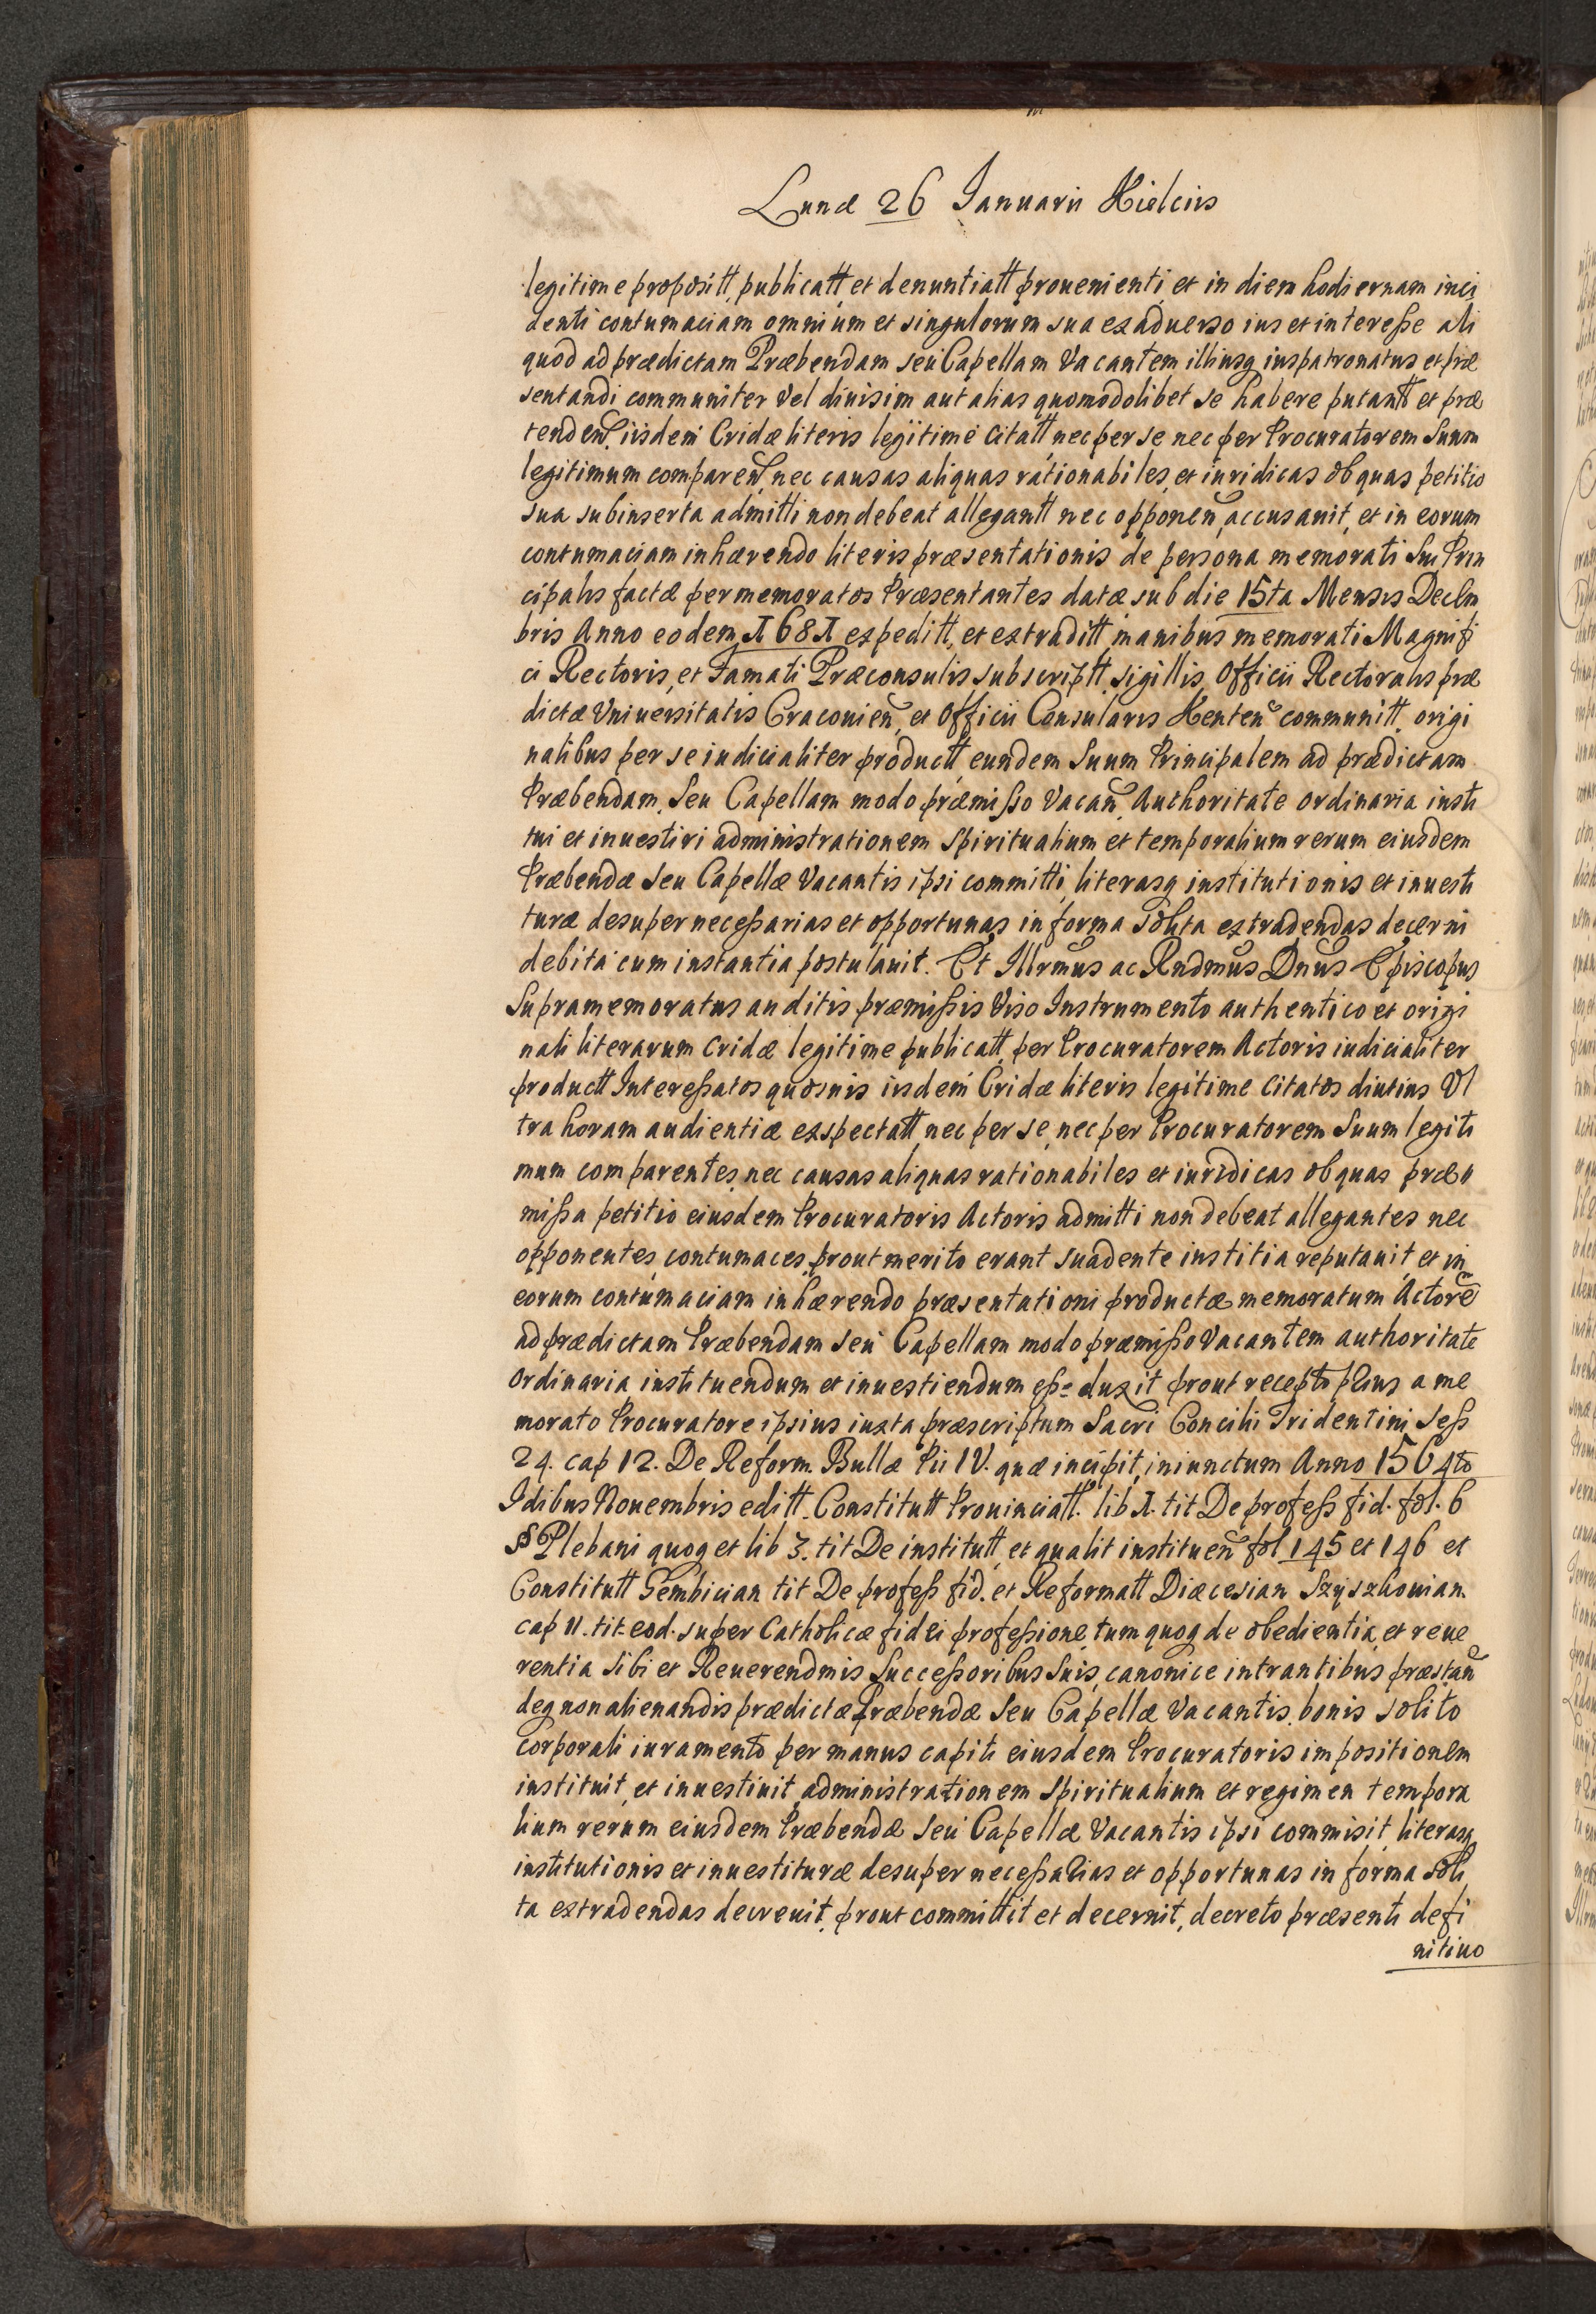 Lunæ 26 Ianuarii Kielciis
legitime propositt, publicatt et denuntiatt prouenienti, et in diem hodiernam inci
denti contumaciam omnium et singulorum sua ex aduerso ius et interesse ali
quod ad prædictam Præbendam seu Capellam Vacantem illiusq iuspatronatus et præ
sentandi communiter Vel diuisim aut alias quomodolibet se habere putantt et præ
tenden, iisdem Cridæ literis legitime citatt, nec per se nec per Procuratorem Suum
legitimum comparen, nec causas aliquas rationabiles, et iuridicas ob quas petitio
sua subinserta admitti non debeat allegantt nec opponen, accusauit, et in eorum
contumaciam inhærendo literis præsentationis de persona memorati Sui Prin
cipalis factæ per memoratos Præsentantes datæ sub die 15ta Mensis Decem
bris Anno eodem 1681 expeditt, et extraditt manibus memorati Magnifi
ci Rectoris, et Famati Præconsulis subscriptt, sigillis Officii Rectoralis præ
dictæ Vniuersitatis Cracouien, et Officii Consularis Kenten communitt, origi
nalibus per se iudicialiter productt, eundem Suum Principalem ad prædictam
Præbendam, Seu Capellam modo præmisso Vacan, Authoritate ordinaria insti
tui et inuestiri administrationem Spiritualium et temporalium rerum eiusdem
Præbendæ Seu Capellæ Vacantis ipsi committi, literasq institutionis et inuesti
turæ desuper necessarias et opportunas in forma solita extradendas decerni
debita cum instantia postulauit. Et Illrmus ac Rndmus Dnus Episcopus
Supramemoratus auditis præmissis Viso Instrumento authentico et origi
nali literarum Cridæ legitime publicatt, per Procuratorem Actoris iudicialiter
productt Interessatos quosuis iisdem Cridæ literis legitime citatos diutius Vl
tra horam audientiæ exspectatt, nec per se, nec per Procuratorem Suum legiti
mum comparentes, nec causas aliquas rationabiles et iuridicas ob quas præ
missa petitio eiusdem Procuratoris Actoris admitti non debeat allegantes nec
opponentes, contumaces, prout merito erant suadente iustitia reputauit, et in
eorum contumaciam inhærendo præsentationi productæ memoratum Actore
ad prædictam Præbendam seu Capellam modo præmisso Vacantem authoritate
Ordinaria instituendum et inuestiendum esse duxit prout recepto prius a me
morato Procuratore ipsius iuxta præscriptum Sacri Concilii Tridentini Sess
24. cap 12. De Reform. Bullæ Pii IV. quæ incipit, iniunctum Anno 1564to
Idibus Nouembris editt. Constitutt Prouinciatt. lib 1. tit De profess fid. fol. 6
§ Plebani quoq et lib 3. tit De institutt, et qualit instituen fol 145 et 146 et
Constitutt Gembician tit De profess fid. et Reformatt Diæcesian Szyszkouian.
cap V. tit. eod. super Catholicæ fidei professione, tum quoq de obedientia, et reue
rentia Sibi et Reuerendmis Successoribus Suis, canonice intrantibus præstan
deq non alienandis prædictæ Præbendæ Seu Capellæ Vacantis, bonis solito
corporali iuramento per manus capiti eiusdem Procuratoris impositionem
instituit, et inuestiuit, administrationem Spiritualium et regimen tempora
lium rerum eiusdem Præbendæ seu Capellæ Vacantis ipsi commisit, literasq
institutionis et inuestituræ desuper necessarias et opportunas in forma soli
ta extradendas decreuit, prout committit et decernit, decreto præsenti defi
nitiuo